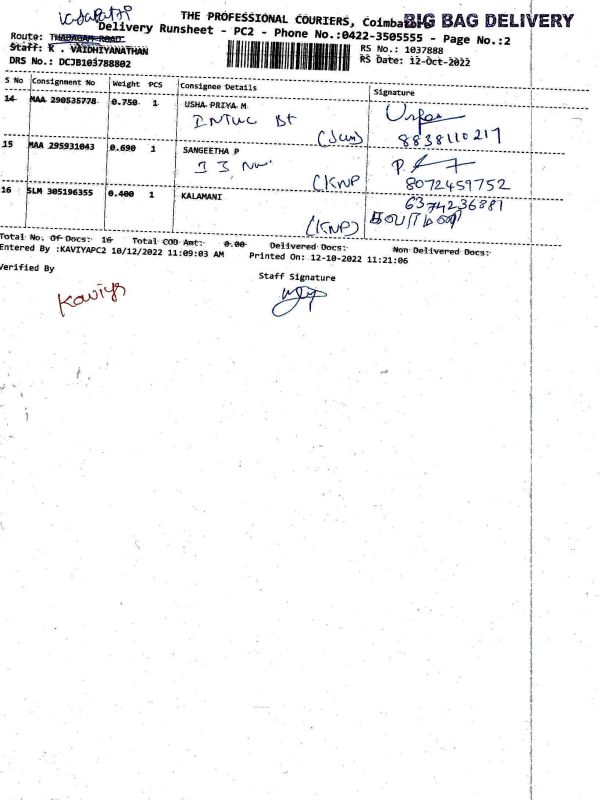 THE PROFESSIONAL COURIERS, Coimbatore
BIG BAG DELIVERY
Delivery Runsheet - PC2 - Phone No.:0422-3505555 - Page No.:2
Route: THADAGAM ROAD
RS No.: 1037888
Staff: K . VAIDHIYANATHAN
RS Date: 12-Oct-2022
DRS No.: DCJB103788802
S No Consignment No Weight PCS Consignee Details Signature
14 MAA 290535778 0.750 1 USHA PRIYA M
INTUC St
8838110217
15 MAA 295931043 0.690 1 SANGEETHA P
(KNP
8072459752
16 SLM 305196355 0.400 1 KALAMANI
6374236881
(KNP) கலாமணி
Total No. Of Docs: 16 Total COD Amt: 0.00 Delivered Docs: Non Delivered Docs:
Entered By :KAVIYAPC2 10/12/2022 11:09:03 AM Printed On: 12-10-2022 11:21:06
Verified By Staff Signature
Kaviya